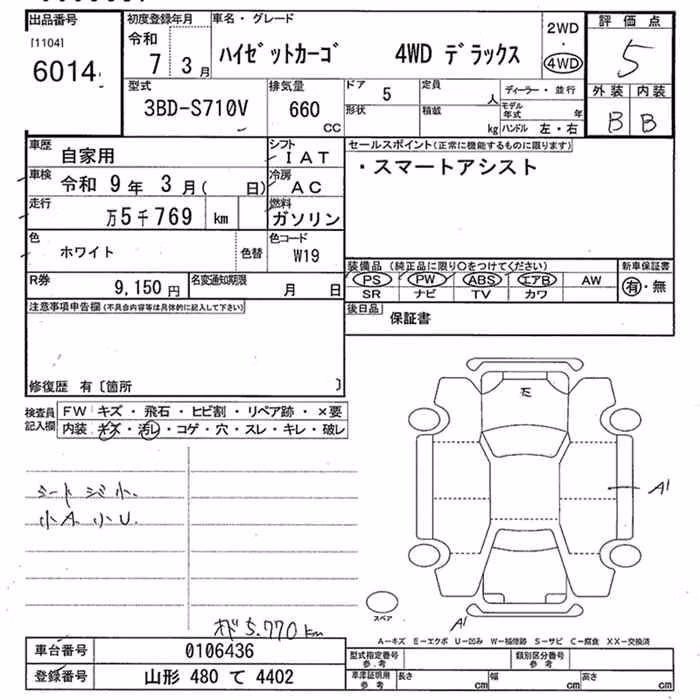 出品番号
[1104]
6014
初度登録年月
令和
7 3月
車名・グレード
ハイゼットカーゴ 4WD デラックス
2WD
・
4WD
評価点
5
外装 内装
B B
型式
3BD-S710V
排気量
660
CC
ドア
5
定員
人
形状
積載
kg
ディーラー・並行
モデル年式 年
ハンドル 左・右
車歴
自家用
シフト
IAT
車検
令和 9年 3月( 日)
冷房
AC
走行
万5千769 km
燃料
ガソリン
色
ホワイト
色替
色コード
W19
R券
9,150円
名変通知期限
月 日
セールスポイント(正常に機能するものに限ります)
・スマートアシスト
装備品(純正品に限り○をつけてください)
PS PW ABS エアB AW
SR ナビ TV カワ
新車保証書
有・無
後日品
保証書
注意事項申告欄(不具合内容等は具体的に記入して下さい)
修復歴 有〔箇所 〕
検査員記入欄
FW キズ・飛石・ヒビ割・リペア跡・×要
内装 キズ・汚レ・コゲ・穴・スレ・キレ・破レ
シート シミ小.
小A. 小U.
オド 5.770km
E
A1
A1
スペア
A-キズ E-エクボ U-凹み W-補修跡 S-サビ C-腐食 XX-交換済
車台番号
0106436
登録番号
山形 480 て 4402
型式指定番号
参考
類別区分番号
参考
車庫証明用
参考
長さ cm
幅 cm
高さ cm